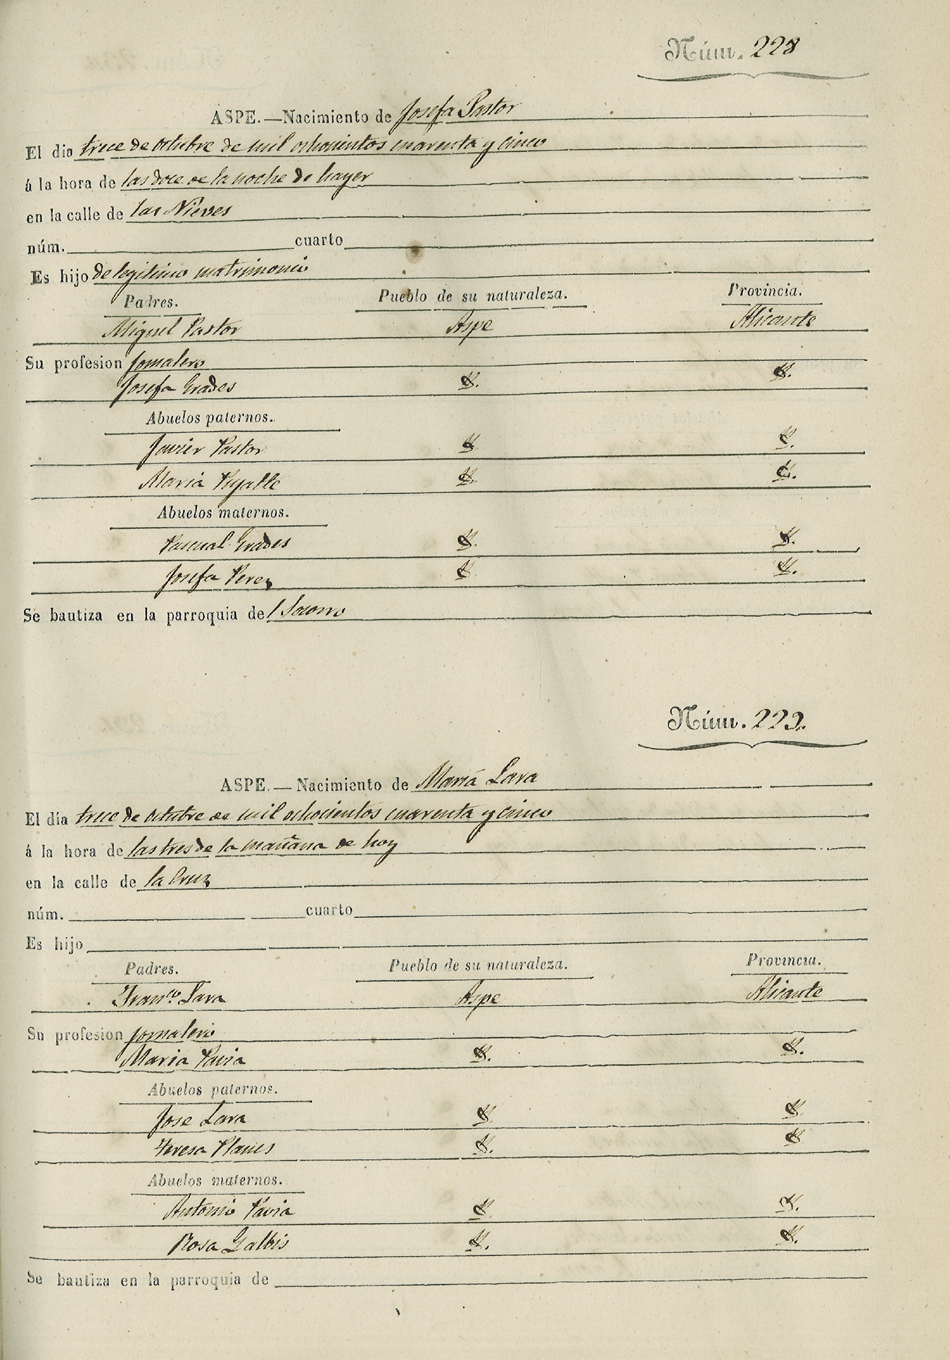 Núm. 228
ASPE.—Nacimiento de Josefa Pastor
El dia trece de octubre de mil ochocientos cuarenta y cinco
á la hora de las doce de la noche de hayer
en la calle de las Nieves
núm. cuarto
Es hijo de legitimo matrimonio
Padres. Pueblo de su naturaleza. Provincia.
Miguel Pastor Aspe Alicante
Su profesion jornalero
Josefa Grades
Abuelos paternos.
Javier Pastor
Maria
Abuelos maternos.
Pascual Grades
Josefa Perez
Se bautiza en la parroquia de l Socorro
Núm. 229.
ASPE.—Nacimiento de Maria Lara
El día trece de octubre de mil ochocientos cuarenta y cinco
á la hora de las tres de la mañana de hoy
en la calle de la Cruz
núm. cuarto
Es hijo
Padres. Pueblo de su naturaleza. Provincia.
Franco Lara Aspe Alicante
Su profesion jornalero
Maria Pavia
Abuelos paternos.
Jose Lara
Teresa Planes
Abuelos maternos.
Antonio Pavia
Rosa Galbis
Se bautiza en la parroquia de